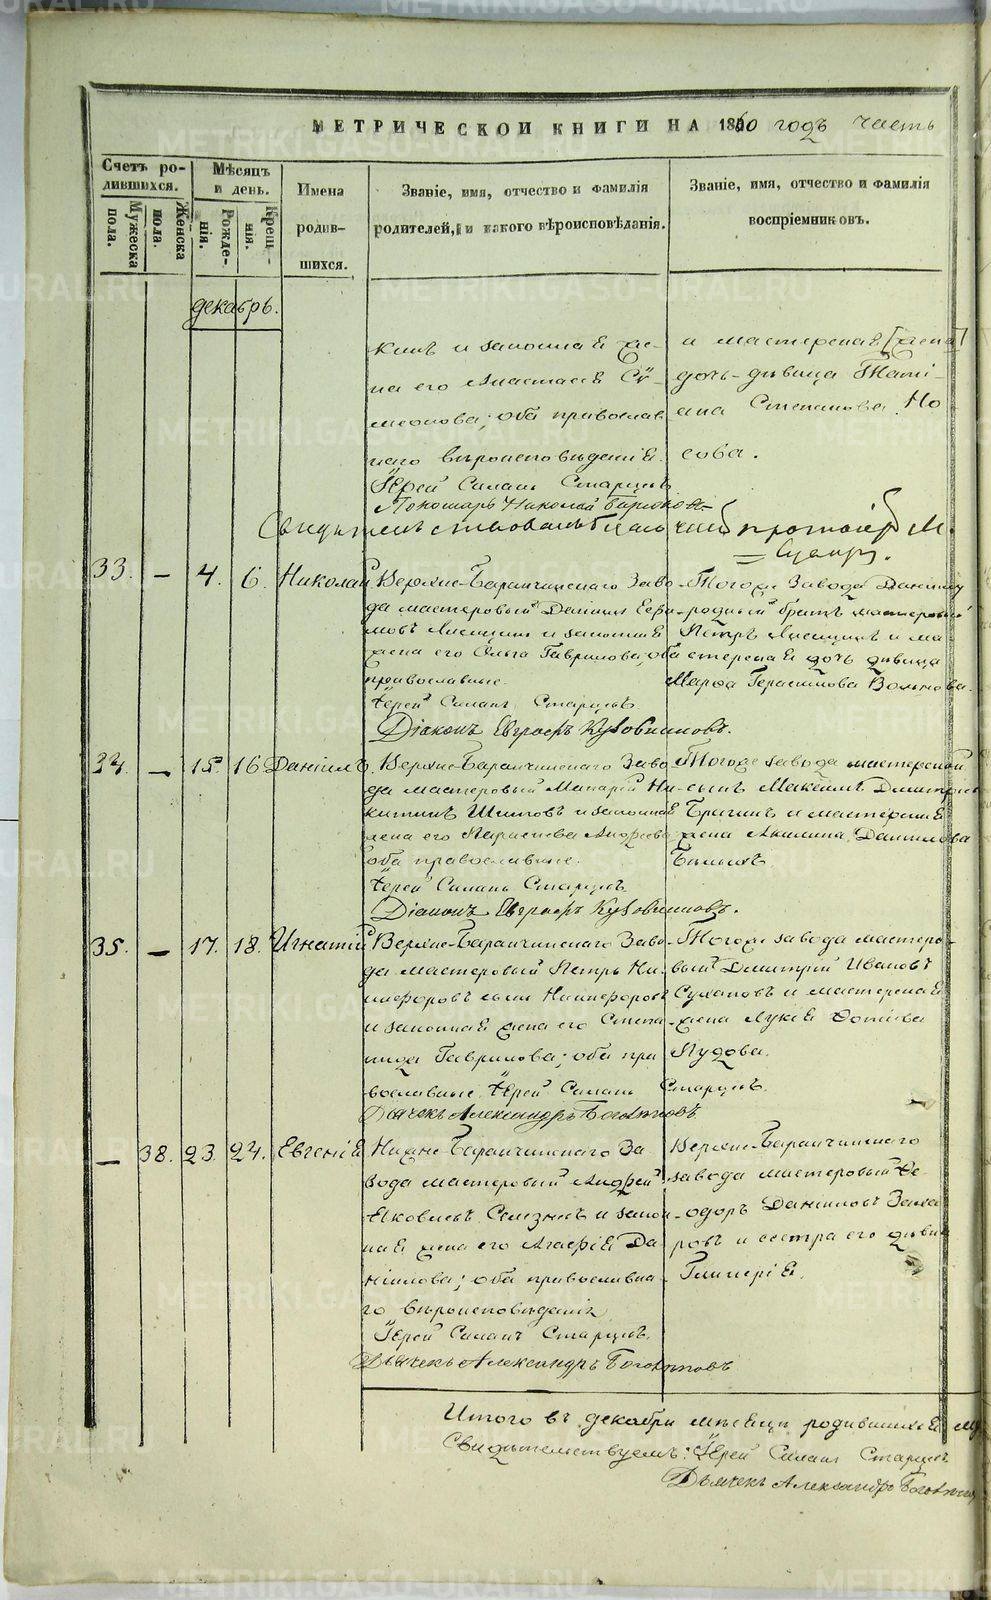 МЕТРИЧЕСКОЙ КНИГИ НА 1860 годъ часть
Счетъ ро-
дившихся.
Мужеска
пола.
Женска
пола.
Мѣсяцъ
и день.
Рожде-
нія.
Крещ-
нія.
Имена
родив-
шихся.
Званіе, имя, отчество и фамилія
родителей, и какого вѣроисповѣданія.
Званіе, имя, отчество и фамилія
воспріемниковъ.
декабрь.
кинъ и законная же-
на его Анастасія Си-
меонова; оба православ
наго вѣроисповѣданія.
Іерей Силанъ Старцевъ
Пономарь Николай Бирюков
и мастерская [жена]
дочь-дѣвица Тати-
ана Степанова Но
сова.
протоіер М.
33. – 4. 6. Николай
Верхне-Баранчинскаго Заво
да мастеровый Даніилъ Ефи
мовъ Лисицинъ и законная
жена его Ольга Гаврилова; оба
православные.
Іерей Силанъ Старцевъ
Діаконъ Евграфъ Кузовниковъ.
Тогоже Завода Даніилу
родный братъ мастеровый
Петръ Лисицинъ и ма
стерская дочь дѣвица
Марѳа Герасимова Волкова.
34. – 15. 16. Даніилъ.
Верхне-Баранчинскаго Заво
да мастеровый Макарій Ни-
китинъ Шиповъ и законная
жена его Параскева Андреева
оба православные.
Іерей Силанъ Старцевъ
Діаконъ Евграфъ Кузовниковъ.
Тогоже завода мастерской
сынъ Максимъ Дмитріевъ
и мастерская
жена Акилина Данилова
35. – 17. 18. Игнатій
Верхне-Баранчинскаго Заво-
да мастеровый Петръ Ни-
кифоровъ сынъ Никифоровъ
и законная жена его Степа-
нида Гаврилова; оба пра
вославные. Іерей Силанъ Старцевъ.
Дьячекъ Александръ Богомоловъ
Тогоже завода мастеро-
вый Дмитрій Ивановъ
Сухановъ и мастерская
жена Лукія Фотіева
Пудова.
– 38. 23. 24. Евгенія
Нижне-Баранчинскаго За
вода мастеровый Андрей
Яковлевъ Селезневъ и закон
ная жена его Агафія Да
ніилова; оба православна-
го вѣроисповѣданія
Іерей Силанъ Старцевъ.
Дьячекъ Александръ
Верхне-Баранчинскаго
завода мастеровый Ѳе-
одоръ Даніиловъ
и сестра его дѣвица
Гликерія.
Итого въ декабрѣ мѣсяцѣ родившихся му
Свидѣтельствуемъ: Іерей Силанъ Старцевъ
Дьячекъ Александръ
METRIKI.GASO-URAL.RU